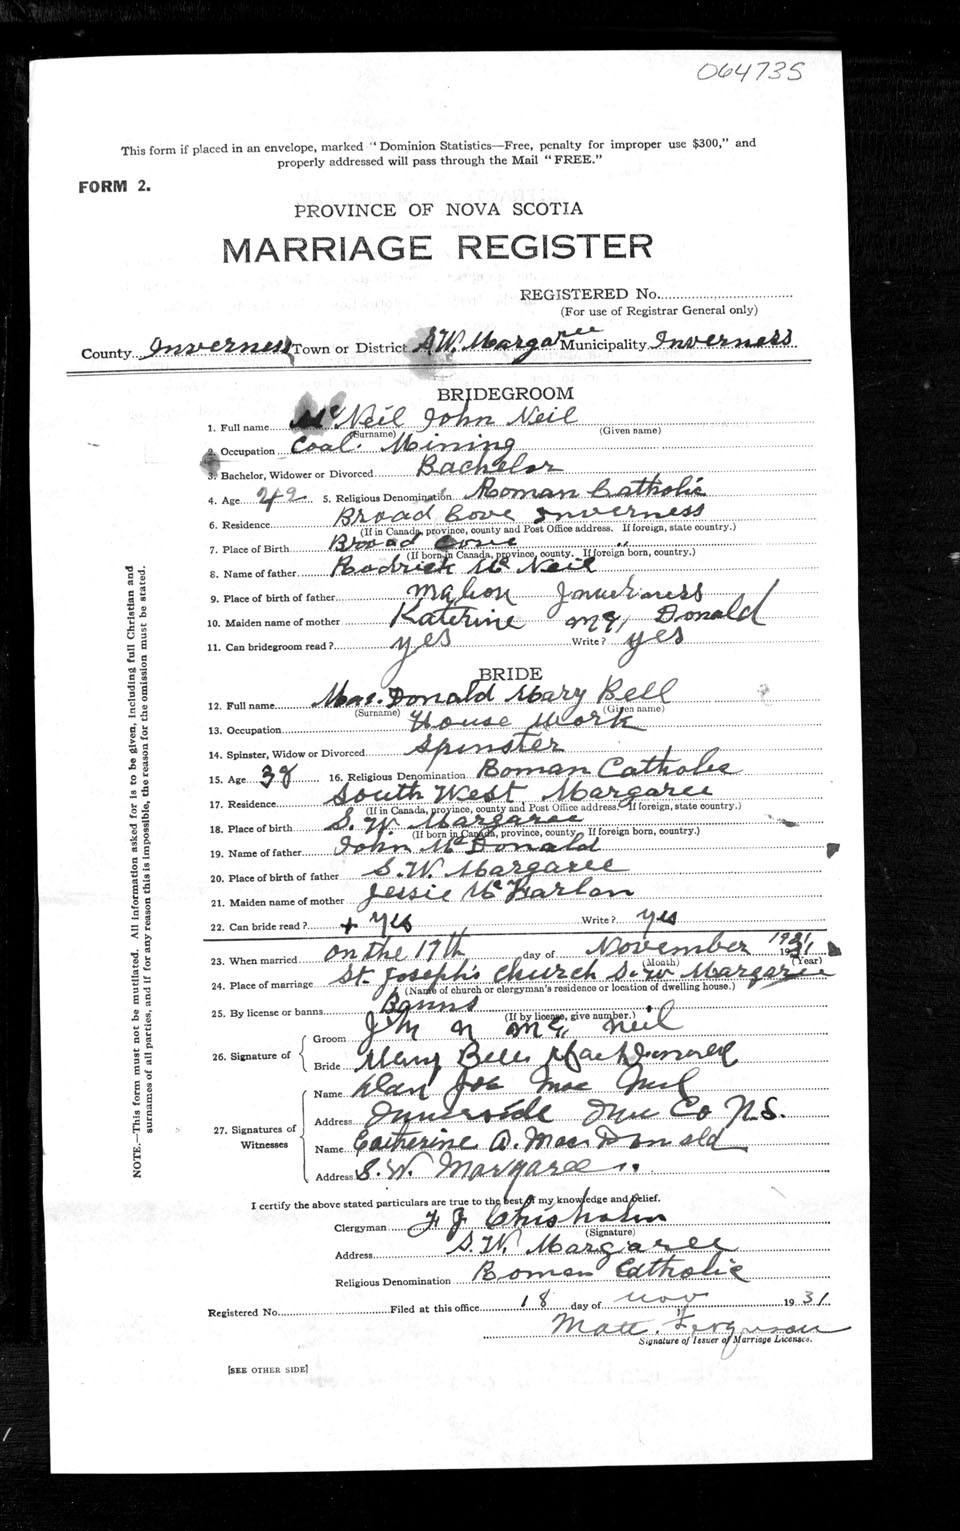 064735
This form if placed in an envelope, marked "Dominion Statistics—Free, penalty for improper use $300," and
properly addressed will pass through the Mail "FREE."
FORM 2.
PROVINCE OF NOVA SCOTIA
MARRIAGE REGISTER
REGISTERED No.
(For use of Registrar General only)
County Inverness Town or District S.W. Margaree Municipality Inverness
BRIDEGROOM
1. Full name McNeil John Neil
(Surname) (Given name)
2. Occupation Coal Mining
3. Bachelor, Widower or Divorced Bachelor
4. Age 42 5. Religious Denomination Roman Catholic
6. Residence Broad Cove Inverness
(If in Canada, province, county and Post Office address. If foreign, state country.)
7. Place of Birth Broad Cove "
(If born in Canada, province, county. If foreign born, country.)
8. Name of father Rodrick McNeil
9. Place of birth of father Mabou Inverness
10. Maiden name of mother Katerine Mc Donald
11. Can bridegroom read? yes Write? yes
BRIDE
12. Full name Mac. Donald Mary Bell
(Surname) (Given name)
13. Occupation House Work
14. Spinster, Widow or Divorced Spinster
15. Age 38 16. Religious Denomination Roman Catholic
17. Residence South West Margaree
(If in Canada, province, county and Post Office address. If foreign, state country.)
18. Place of birth S. W. Margaree
(If born in Canada, province, county. If foreign born, country.)
19. Name of father John McDonald
20. Place of birth of father S. W. Margaree
21. Maiden name of mother Jessie McFarlan
22. Can bride read? + Yes Write? yes
23. When married on the 17th day of November 1931 1931
(Month) (Year)
24. Place of marriage St. Joseph's Church S. W Margaree
(Name of church or clergyman's residence or location of dwelling house.)
25. By license or banns Banns
(If by license, give number.)
26. Signature of
Groom John N Mc Neil
Bride Mary Bell MacDonald
27. Signatures of Witnesses
Name Dan Joe Mac Neil
Address Inverside Inv Co N.S.
Name Catherine A. MacDonald
Address S. W. Margaree
I certify the above stated particulars are true to the best of my knowledge and belief.
Clergyman F J Chisholm
(Signature)
Address S. W. Margaree
Religious Denomination Roman Catholic
Registered No. Filed at this office 18 day of Nov 1931
Matt. Ferguson
Signature of Issuer of Marriage Licenses.
[SEE OTHER SIDE]
NOTE.—This form must not be mutilated. All information asked for is to be given, including full Christian and
surnames of all parties, and if for any reason this is impossible, the reason for the omission must be stated.